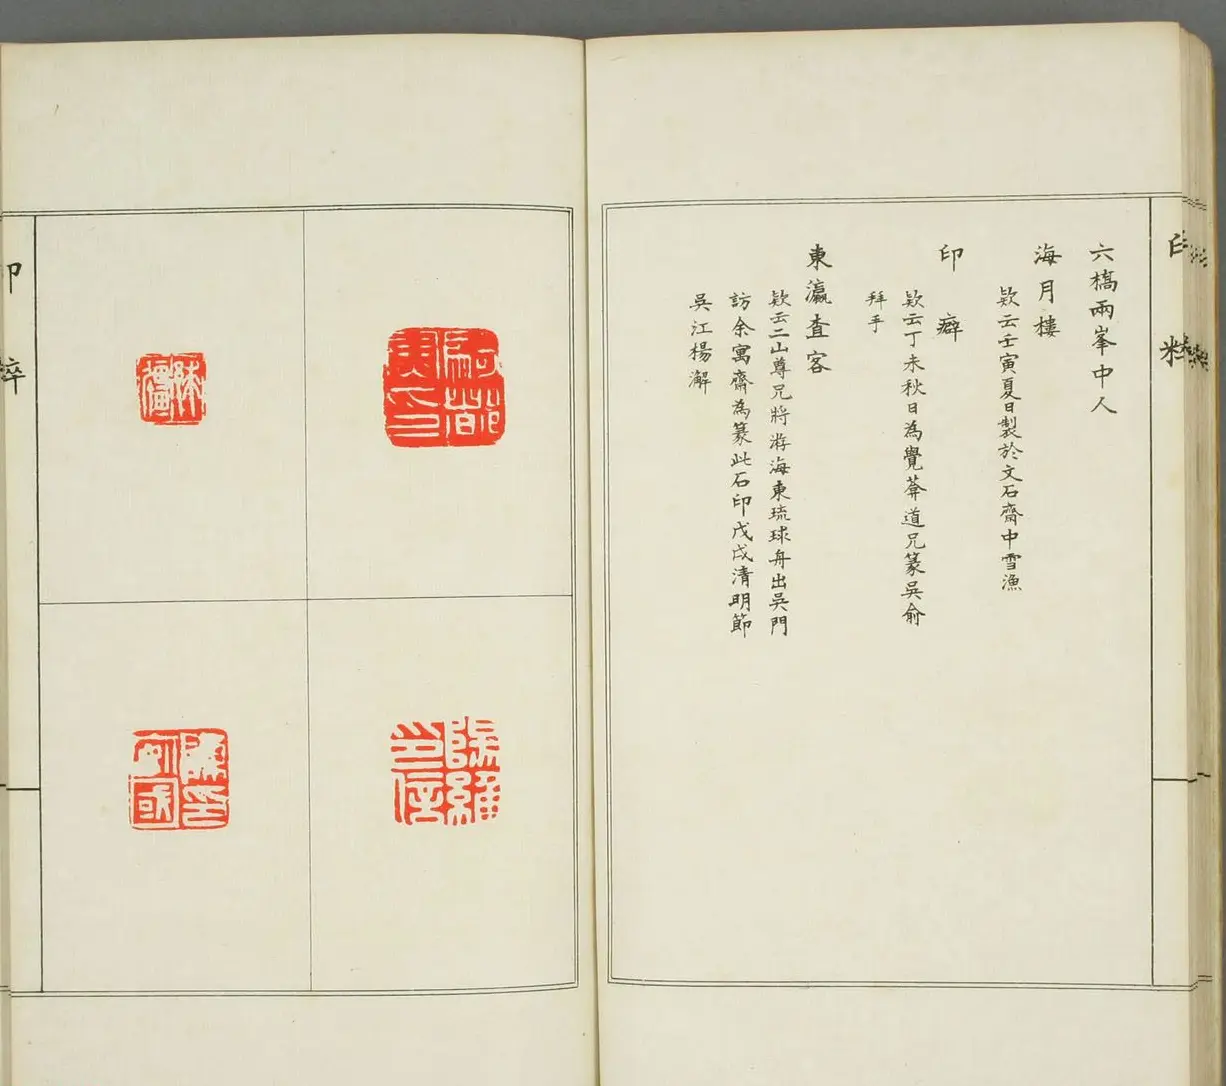 六橋兩峯中人
海月樓
欵云壬寅夏日製於文石齋中雪漁
印癖
欵云丁未秋日為覺葊道兄篆吳俞
拜手
東瀛査客
欵云二山尊兄將游海東琉球舟出吳門
訪余寓齋為篆此石印戊戌清明節
吳江楊澥
印粹